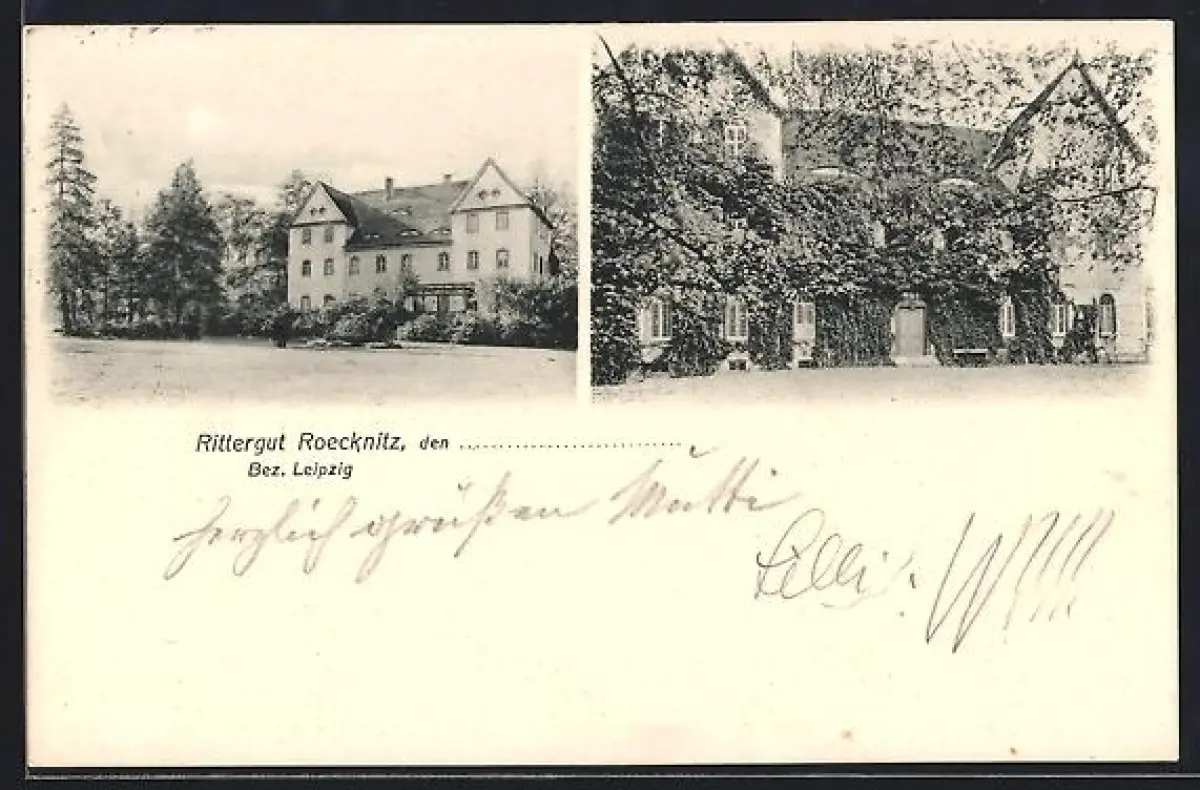 Rittergut Roecknitz, den ............................
Bez. Leipzig
Herzlich grüßen Mutti
Lilli.